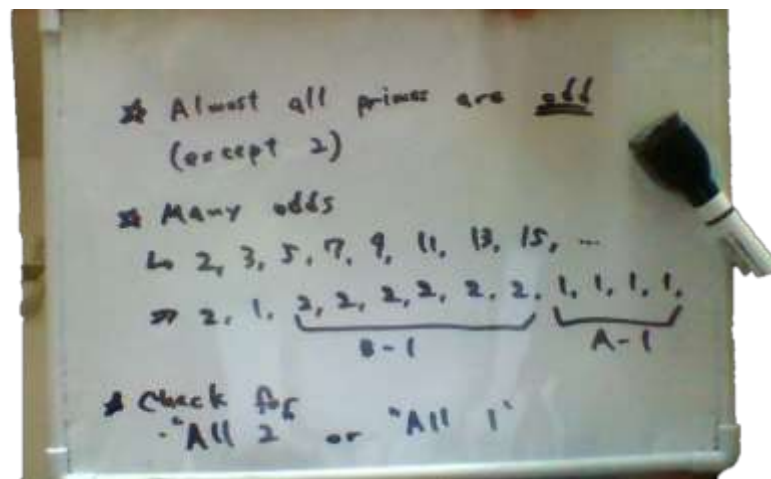 ☆ Almost all primes are odd
(except 2)
☆ Many odds
↳ 2, 3, 5, 7, 9, 11, 13, 15, ...
⇒ 2, 1, 2, 2, 2, 2, 2, 2, 1, 1, 1, 1,
B-1 A-1
☆ Check for
- "All 2" or "All 1"